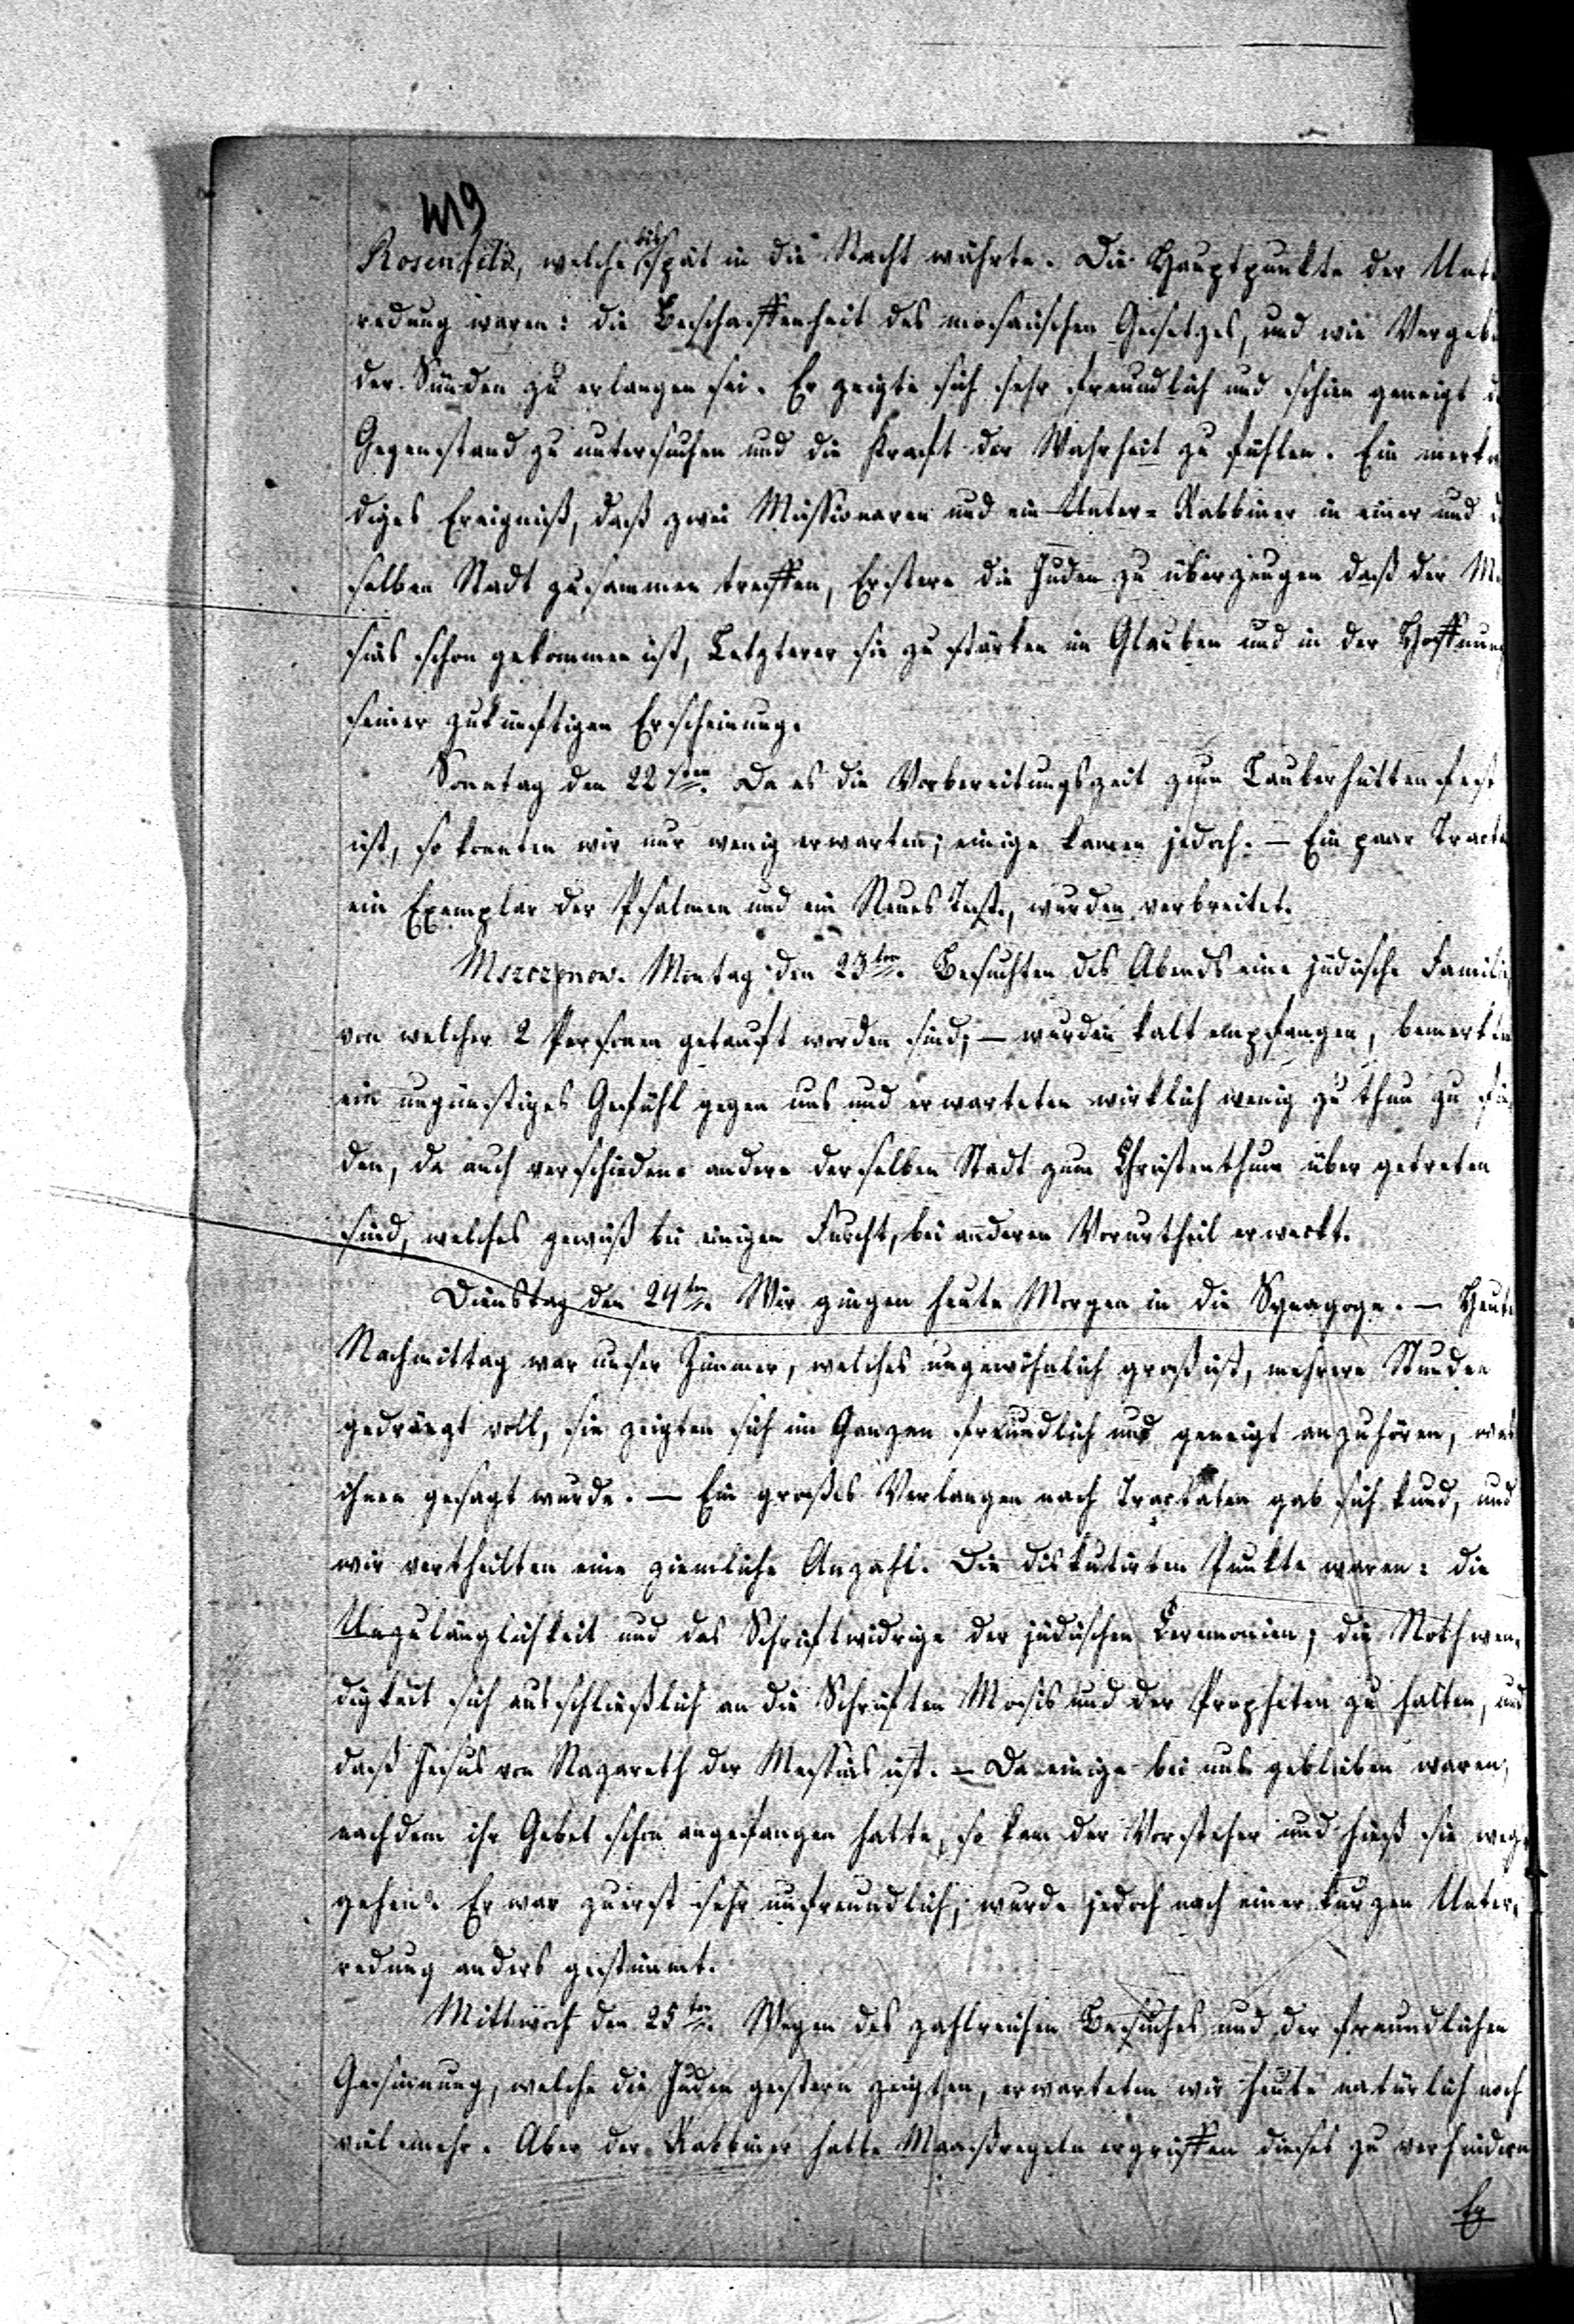 419
Rosenfeld, welche bis spät in die Nacht währte. Die Hauptpunkte der Unte
redung waren: die Beschaffenheit des mosaischen Gesetzes, und wie Vergebu
der Sünden zu erlangen sei. Er zeigte sich sehr freundlich und schien geneigt d
Gegenstand zu untersuchen und die Kraft der Wahrheit zu fühlen. Ein merkw
diges Ereigniß, daß zwei Missionaren und ein Unter-Rabbiner in einer und d
selben Stadt zusammen treffen, Erstere die Juden zu überzeugen daß der Me
sias schon gekommen ist, Letzterer sie zu stärken im Glauben und in der Hoffnung
seiner zukünftigen Erscheinung.
Sonntag den 22sten. Da es die Vorbereitungszeit zum Lauberhüttenfest
ist, so konnten wir nur wenig erwarten; einige kamen jedoch. — Ein paar Tracta
ein Exemplar der Psalmen und ein Neues Test., wurden verbreitet.
Mszczonow. Montag den 23ten. Besuchten des Abends eine jüdische Familie
von welcher 2 Personen getauft worden sind; — wurden kalt empfangen, bemerkten
ein ungünstiges Gefühl gegen uns und erwarteten wirklich wenig zu thun zu fin
den, da auch verschiedene andere derselben Stadt zum Christenthum über getreten
sind, welches gewiß bei einigen Furcht, bei anderen Vorurtheil erweckt.
Dienstag den 24ten. Wir gingen heute Morgen in die Synagoge. — Heute
Nachmittag war unser Zimmer, welches ungewöhnlich groß ist, mehrere Stunden
gedrängt voll, sie zeigten sich im Ganzen freundlich und geneigt anzuhören, was
ihnen gesagt wurde. — Ein großes Verlangen nach Tractaten gab sich kund, und
wir vertheilten eine ziemliche Anzahl. Die diskutirten Punkte waren: die
Unzulänglichkeit und das Schriftwidrige der jüdischen Ceremonien; die Nothwen-
digkeit sich ausschließlich an die Schriften Mosis und der Propheten zu halten, und
daß Jesus von Nazareth der Messias ist. — Da einige bei uns geblieben waren,
nachdem ihr Gebet schon angefangen hatte, so kam der Vorsteher und hieß sie weg-
gehen. Er war zuerst sehr unfreundlich, wurde jedoch nach einer kurzen Unter-
redung anders gestimmt.
Mittwoch den 25ten. Wegen des zahlreichen Besuches und der freundlichen
Gesinnung, welche die Juden gestern zeigten, erwarteten wir heute natürlich noch
viel mehr. Aber der Rabbiner hatte Maaßregeln ergriffen dieses zu verhindern
Er